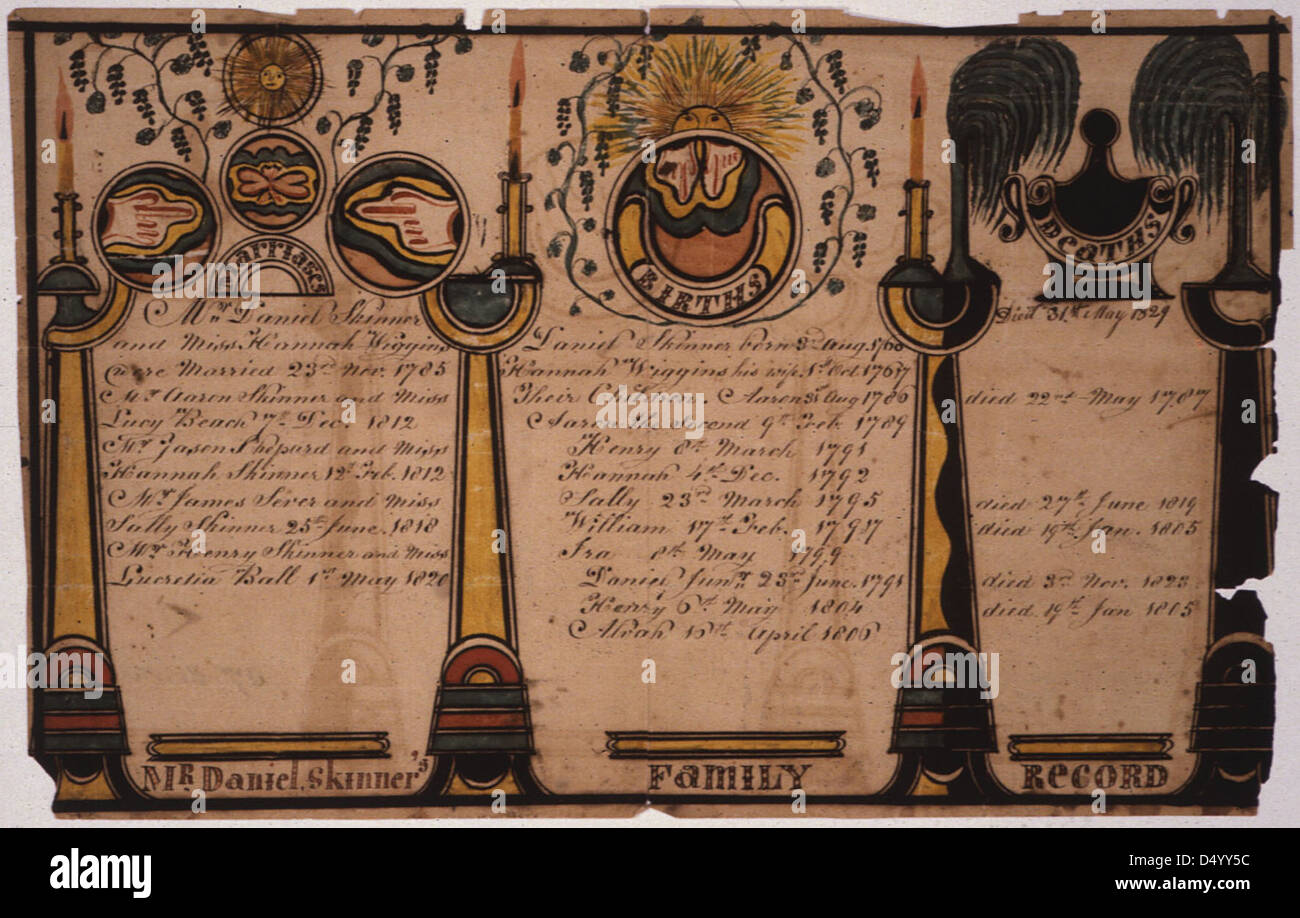 Marriages
Mr. Daniel Skinner
and Miss Hannah Wiggins
were Married 23rd Nov. 1785
Mr. Aaron Skinner and Miss
Lucy Beach 7th Dec. 1812
Mr. Jason Shepard and Miss
Hannah Skinner 12th Feb. 1812
Mr. James Sever and Miss
Sally Skinner 25th June. 1818
Mr. Henry Skinner and Miss
Lucretia Ball 1st May 1820
BIRTHS
Daniel Skinner born 3d Aug. 1760
Hannah Wiggins his wife 1st Oct 1767
Their Children. Aaron 31st Aug 1786
Aaron the second 9th Feb. 1789
Henry 8th March 1791
Hannah 4th Dec. 1792
Sally 23rd March 1795
William 17th Feb. 1797
Ira 8th May 1799
Daniel Junr. 23rd June. 1791
Henry 6th May 1804
Alvah 16th April 1806
DEATHS
Died 31st May 1829
died 22nd May 1787
died 27th June 1819
died 19th Jan. 1805
died 3rd Nov. 1823
died 19th Jan 1805
MR Daniel Skinner's
FAMILY
RECORD
alamy
Image ID: D4YY5C
www.alamy.com